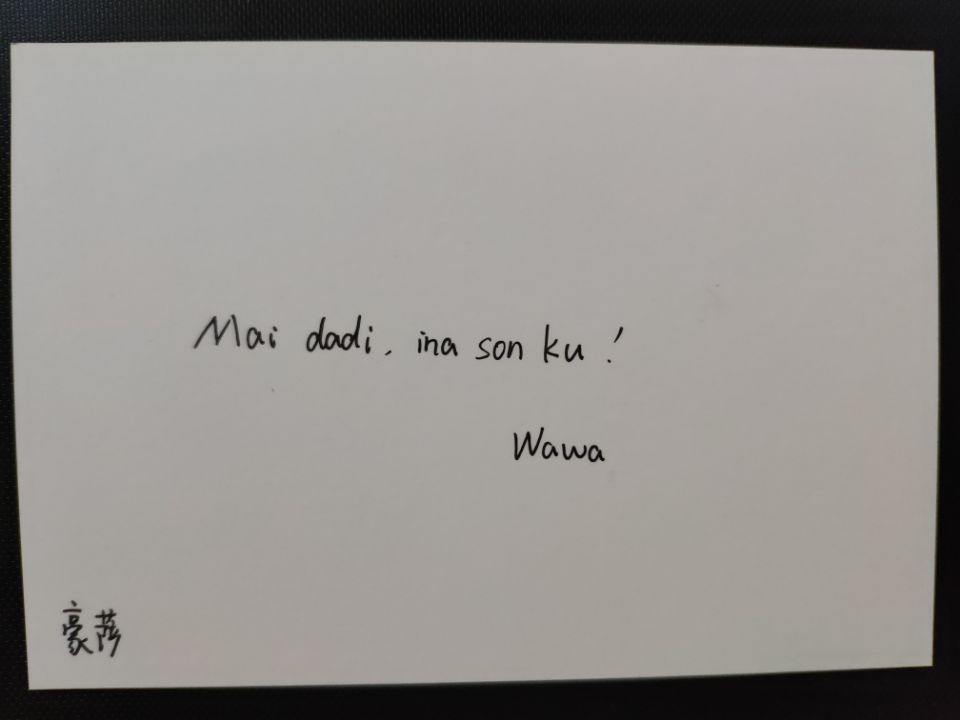 Mai dadi, ina son ku!
Wawa
豪萨